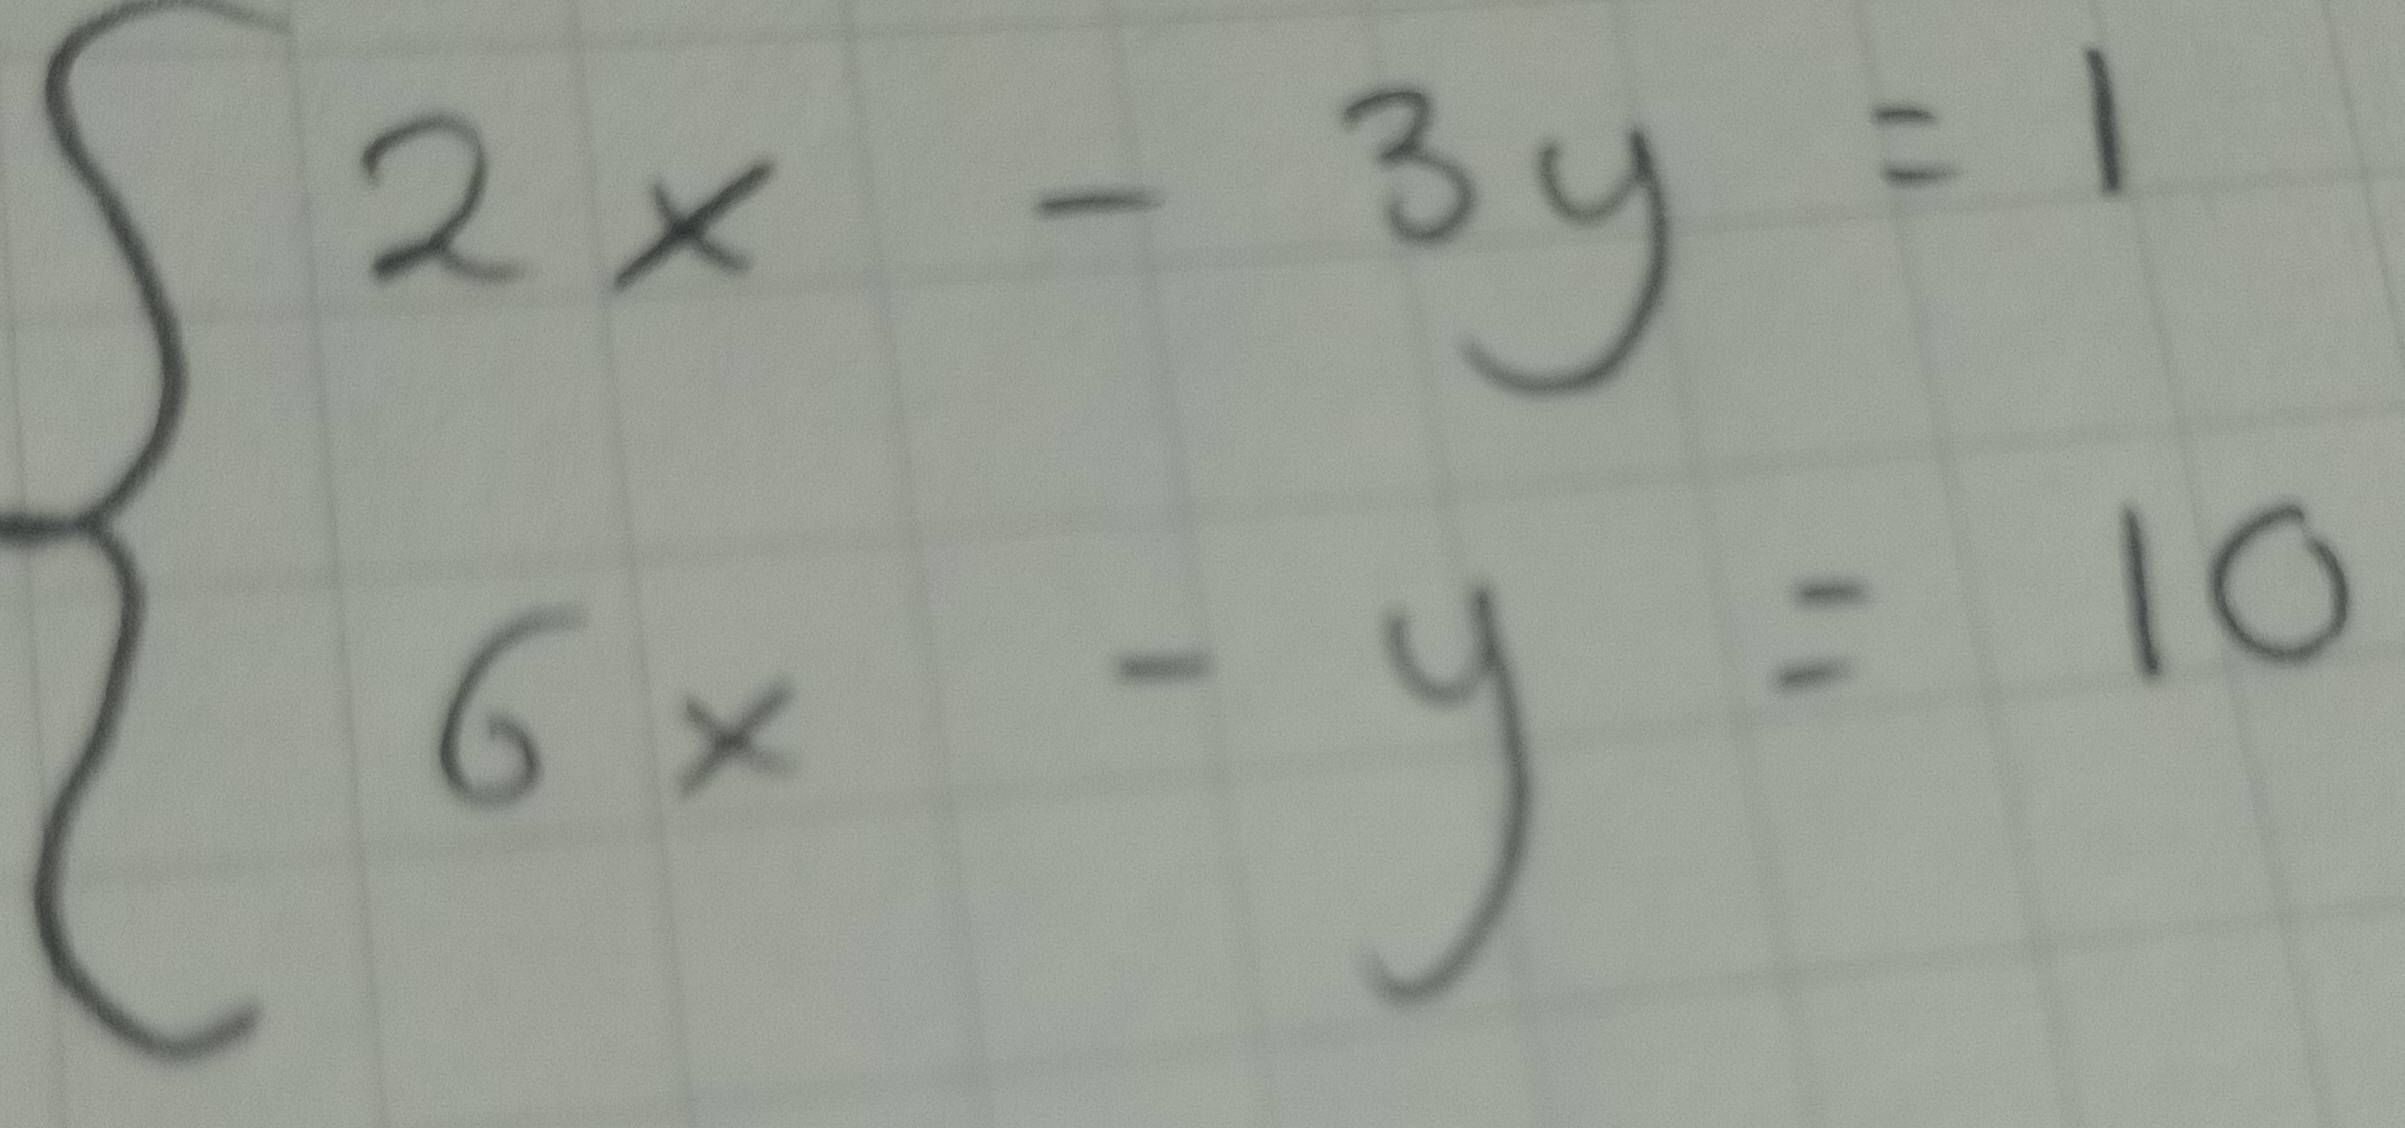 2x - 3y = 1
6x - y = 10